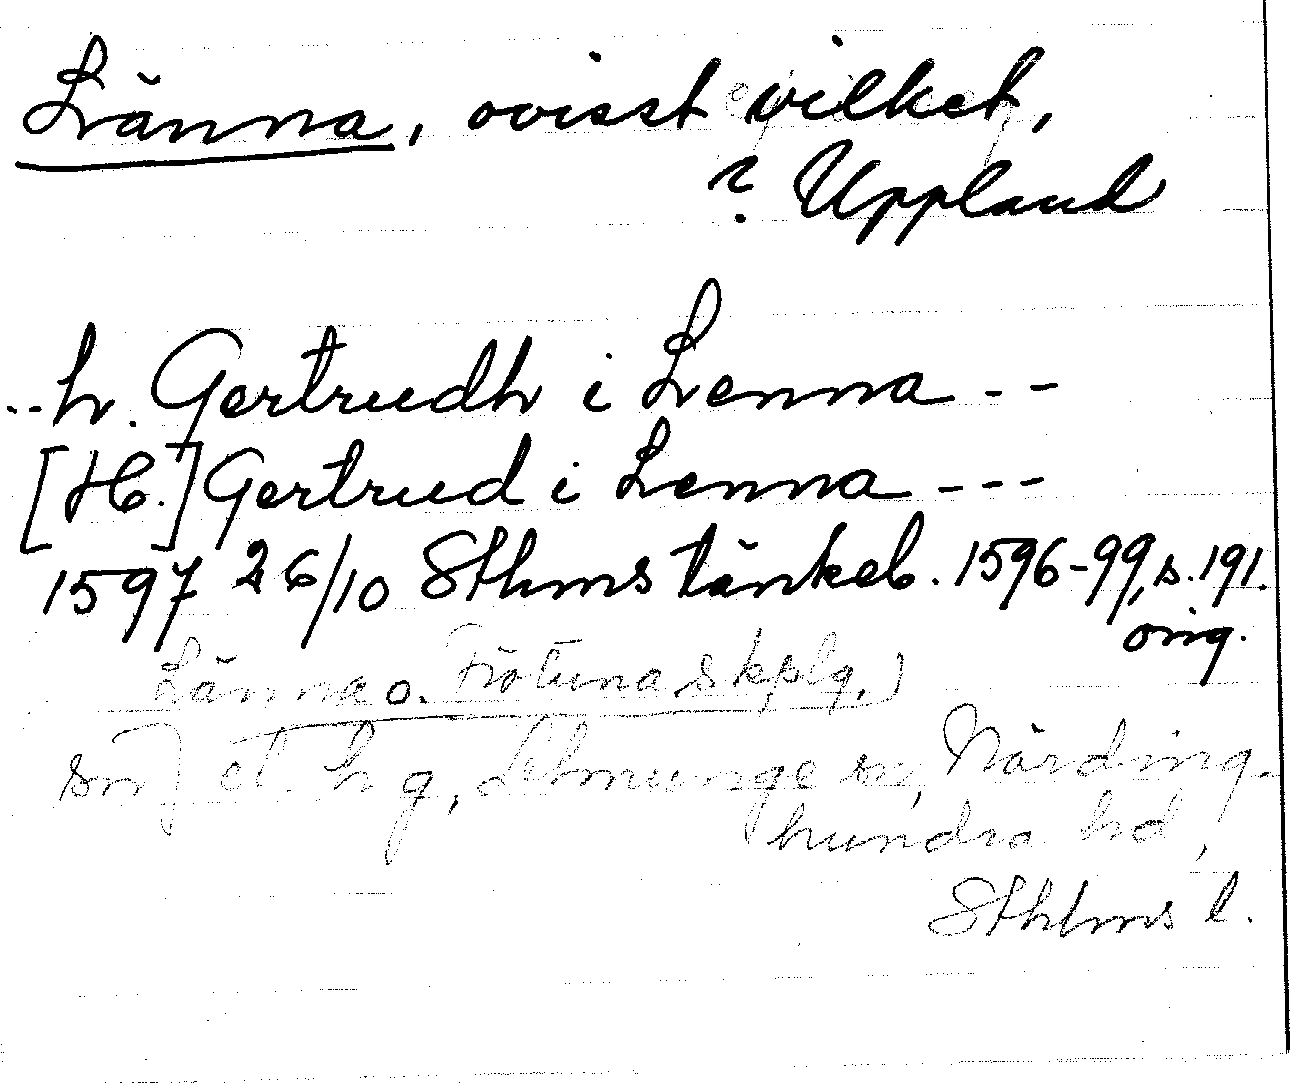 Länna, ovisst vilket,
? Uppland
--h. Gertrudh i Lenna --
[H.] Gertrud i Lenna ---
1597 26/10 Sthms tänkeb. 1596-99, s. 191.
orig.
Länna o. Frötuna skplg,)
sn) et. h g, Lohmunge sn, Närding-
hundra hd,
Sthlms l.